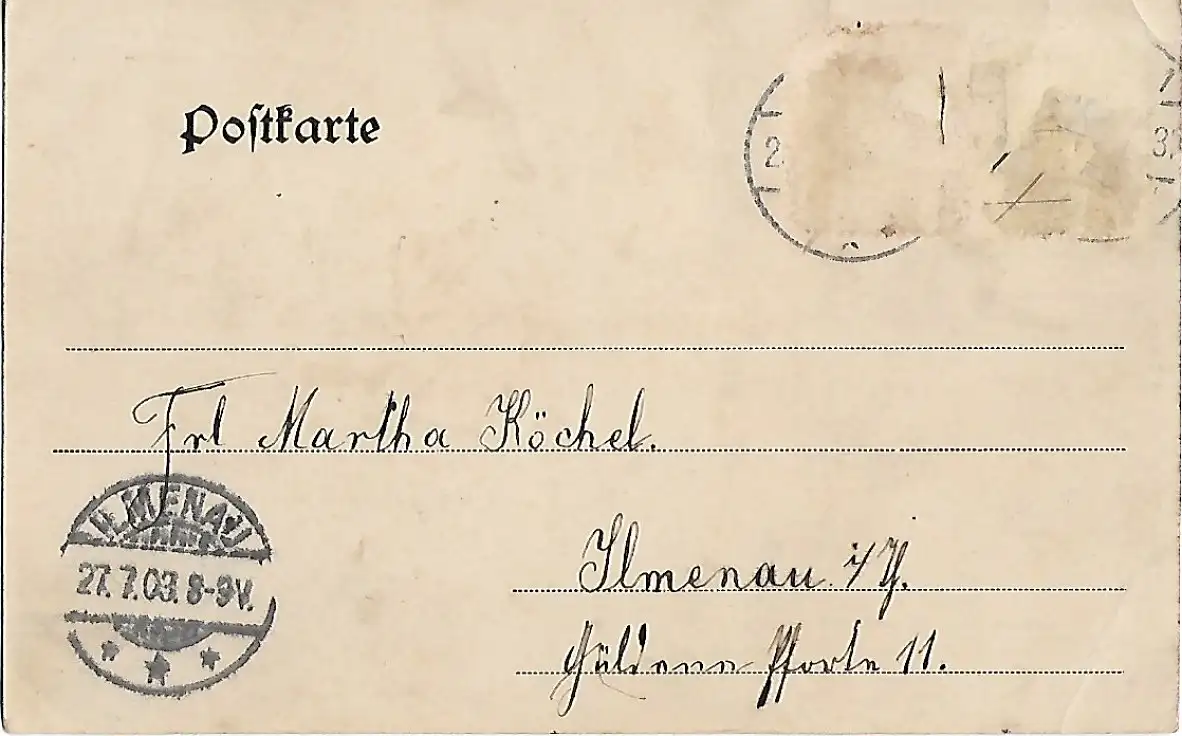 Postkarte
2.
3.
Frl Martha Köchel.
ILMENAU
27.7.03. 8-9V.
Ilmenau i/Th.
Güldene Pforte 11.